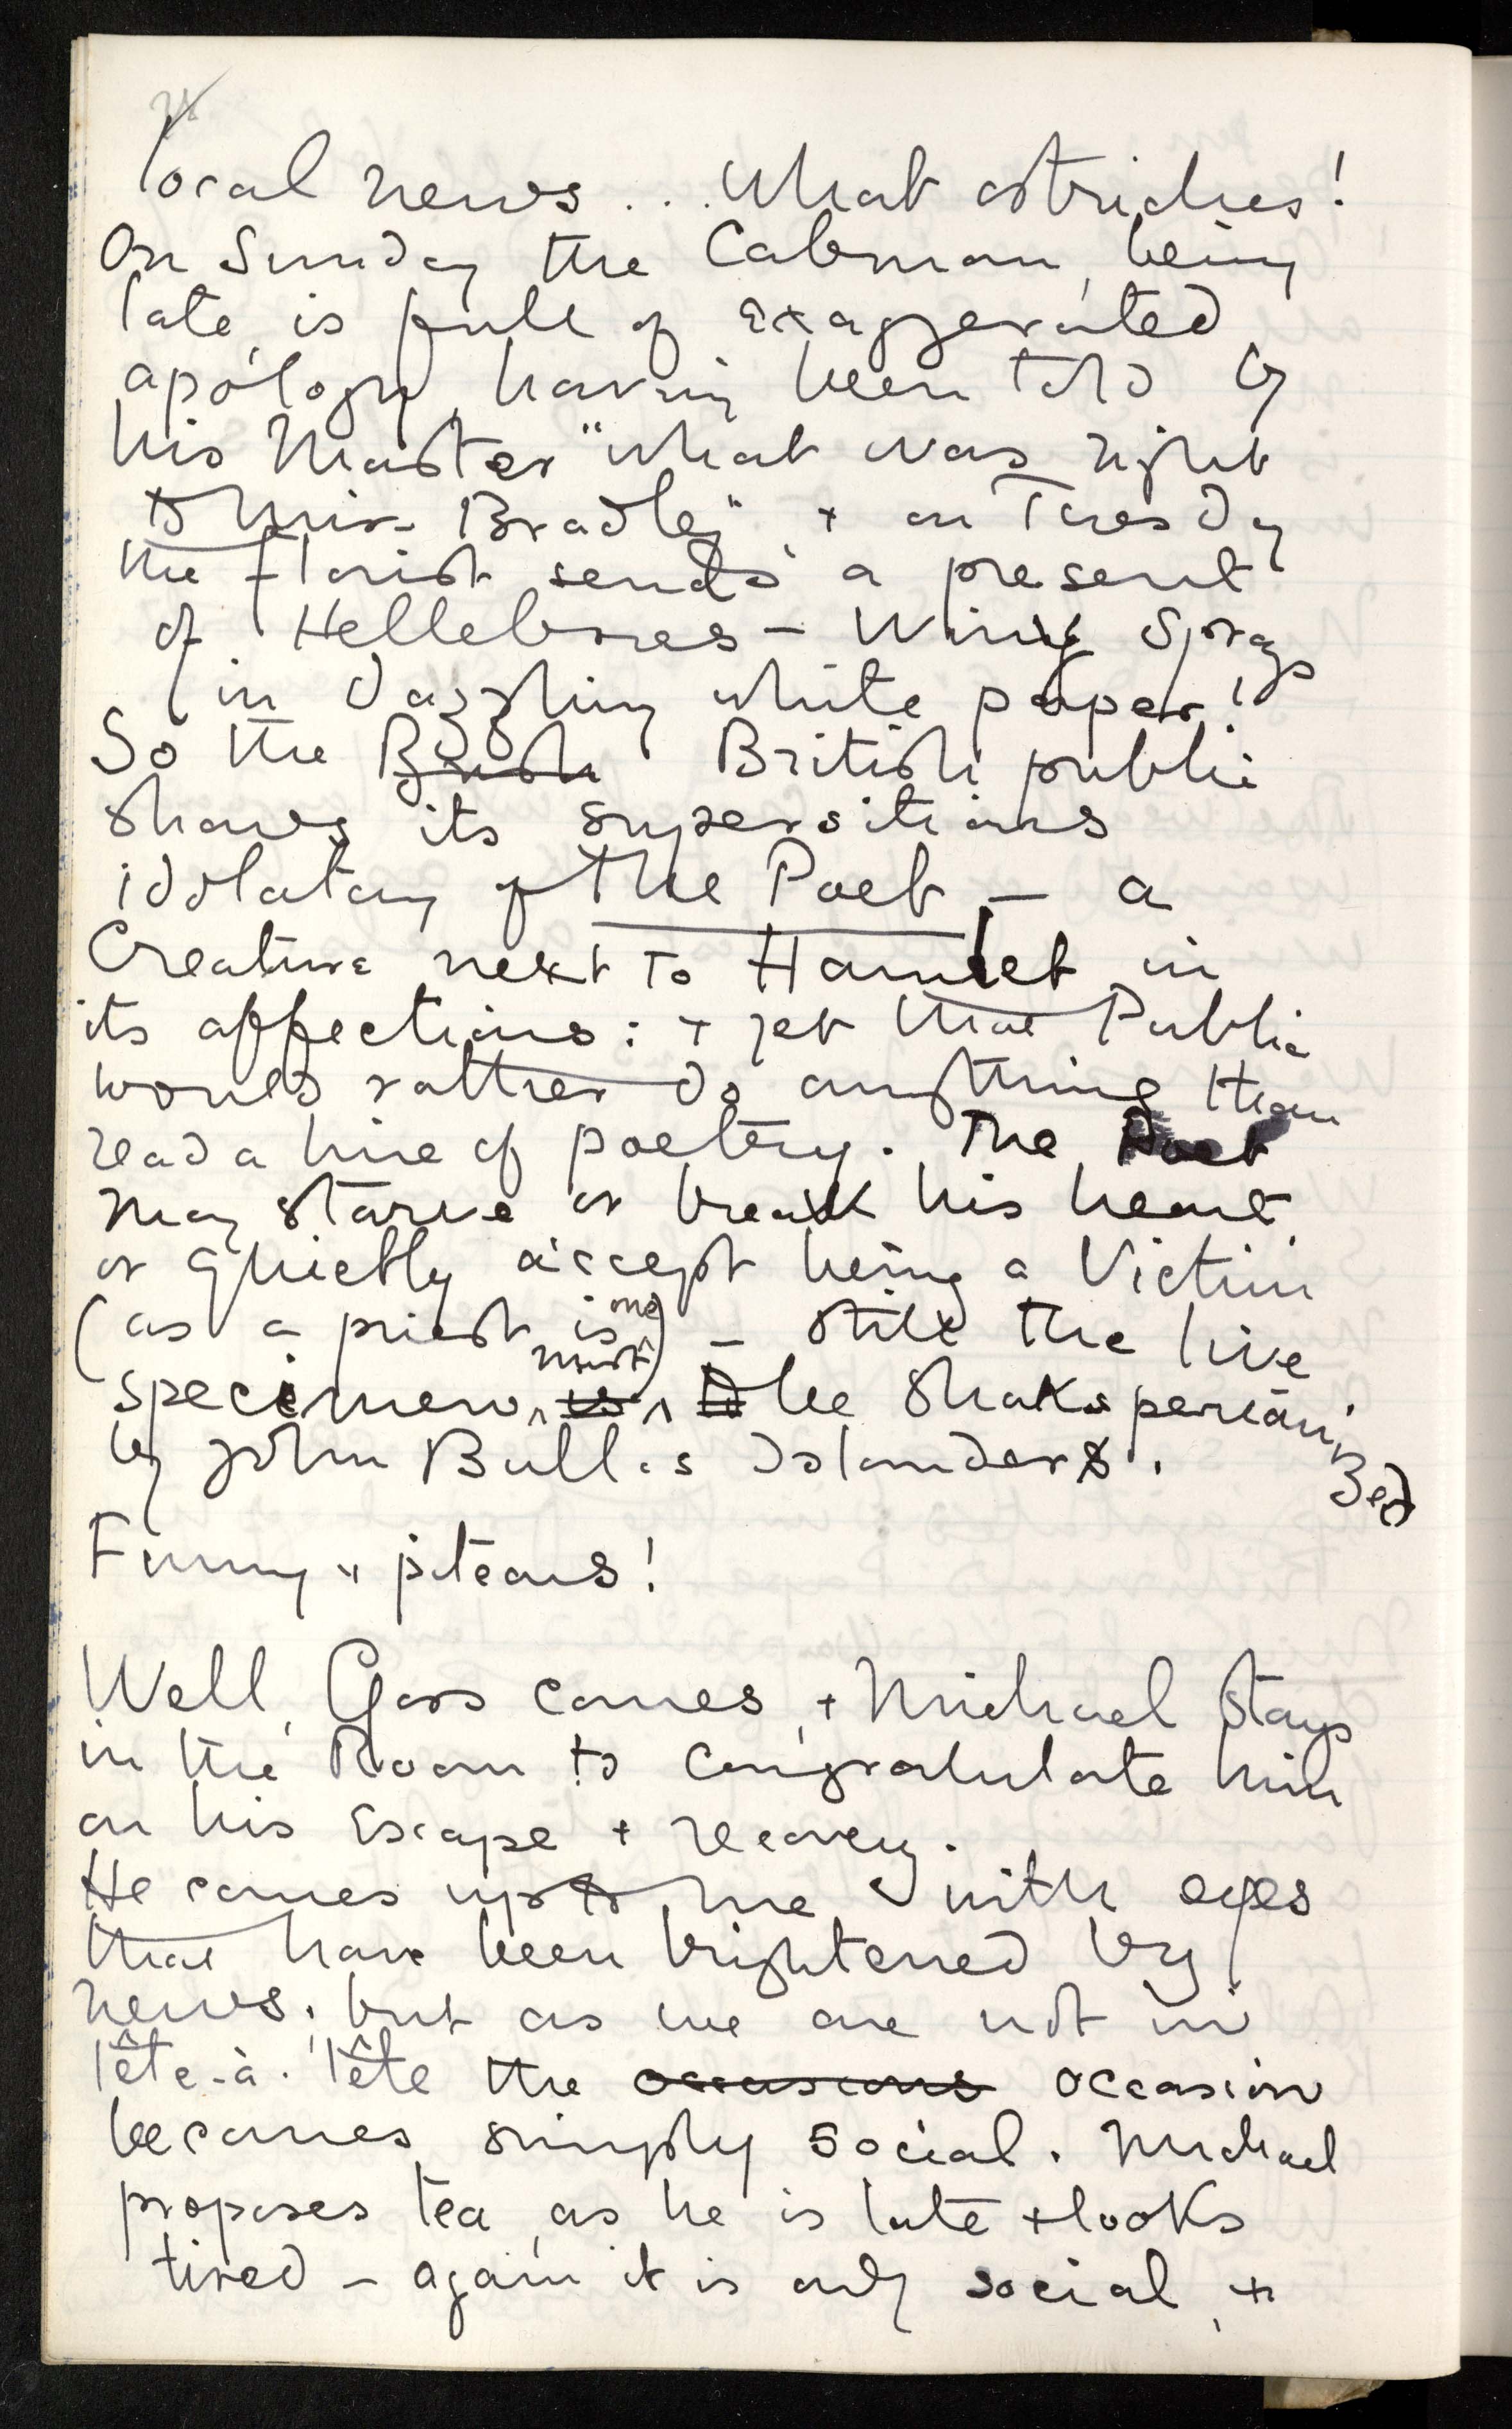 local news . . . What ostriches!
On Sunday the Cabman, being
late, is full of exaggerated
apology, having been told by
his Master "what was right
to Miss Bradley" + on Tuesday
the florist sends a present
of Hellebores — Winy Sprays
in dazzling white paper!
So the British public
shows its supersitious
idolatary of The Poet — a
Creature next to Hamlet in
its affections: + yet that Public
would rather do anything than
read a line of poetry. The Poet
may starve or break his heart
or quietly accept being a Victim
(as a priest is one) — still the live
specimen must be Shaksperian'
zed
by John Bull's Islanders.
Funny + piteous!
Well, Goss comes, + Michael stays
in the Room to congratulate him
on his Escape + recovery.
He comes up to me with eyes
that have been brightened by
news, but as we are not in
tête-à-tête the occasions occasion
becomes simply social. Michael
proposes tea, as he is late + looks
tired — again it is only social, +